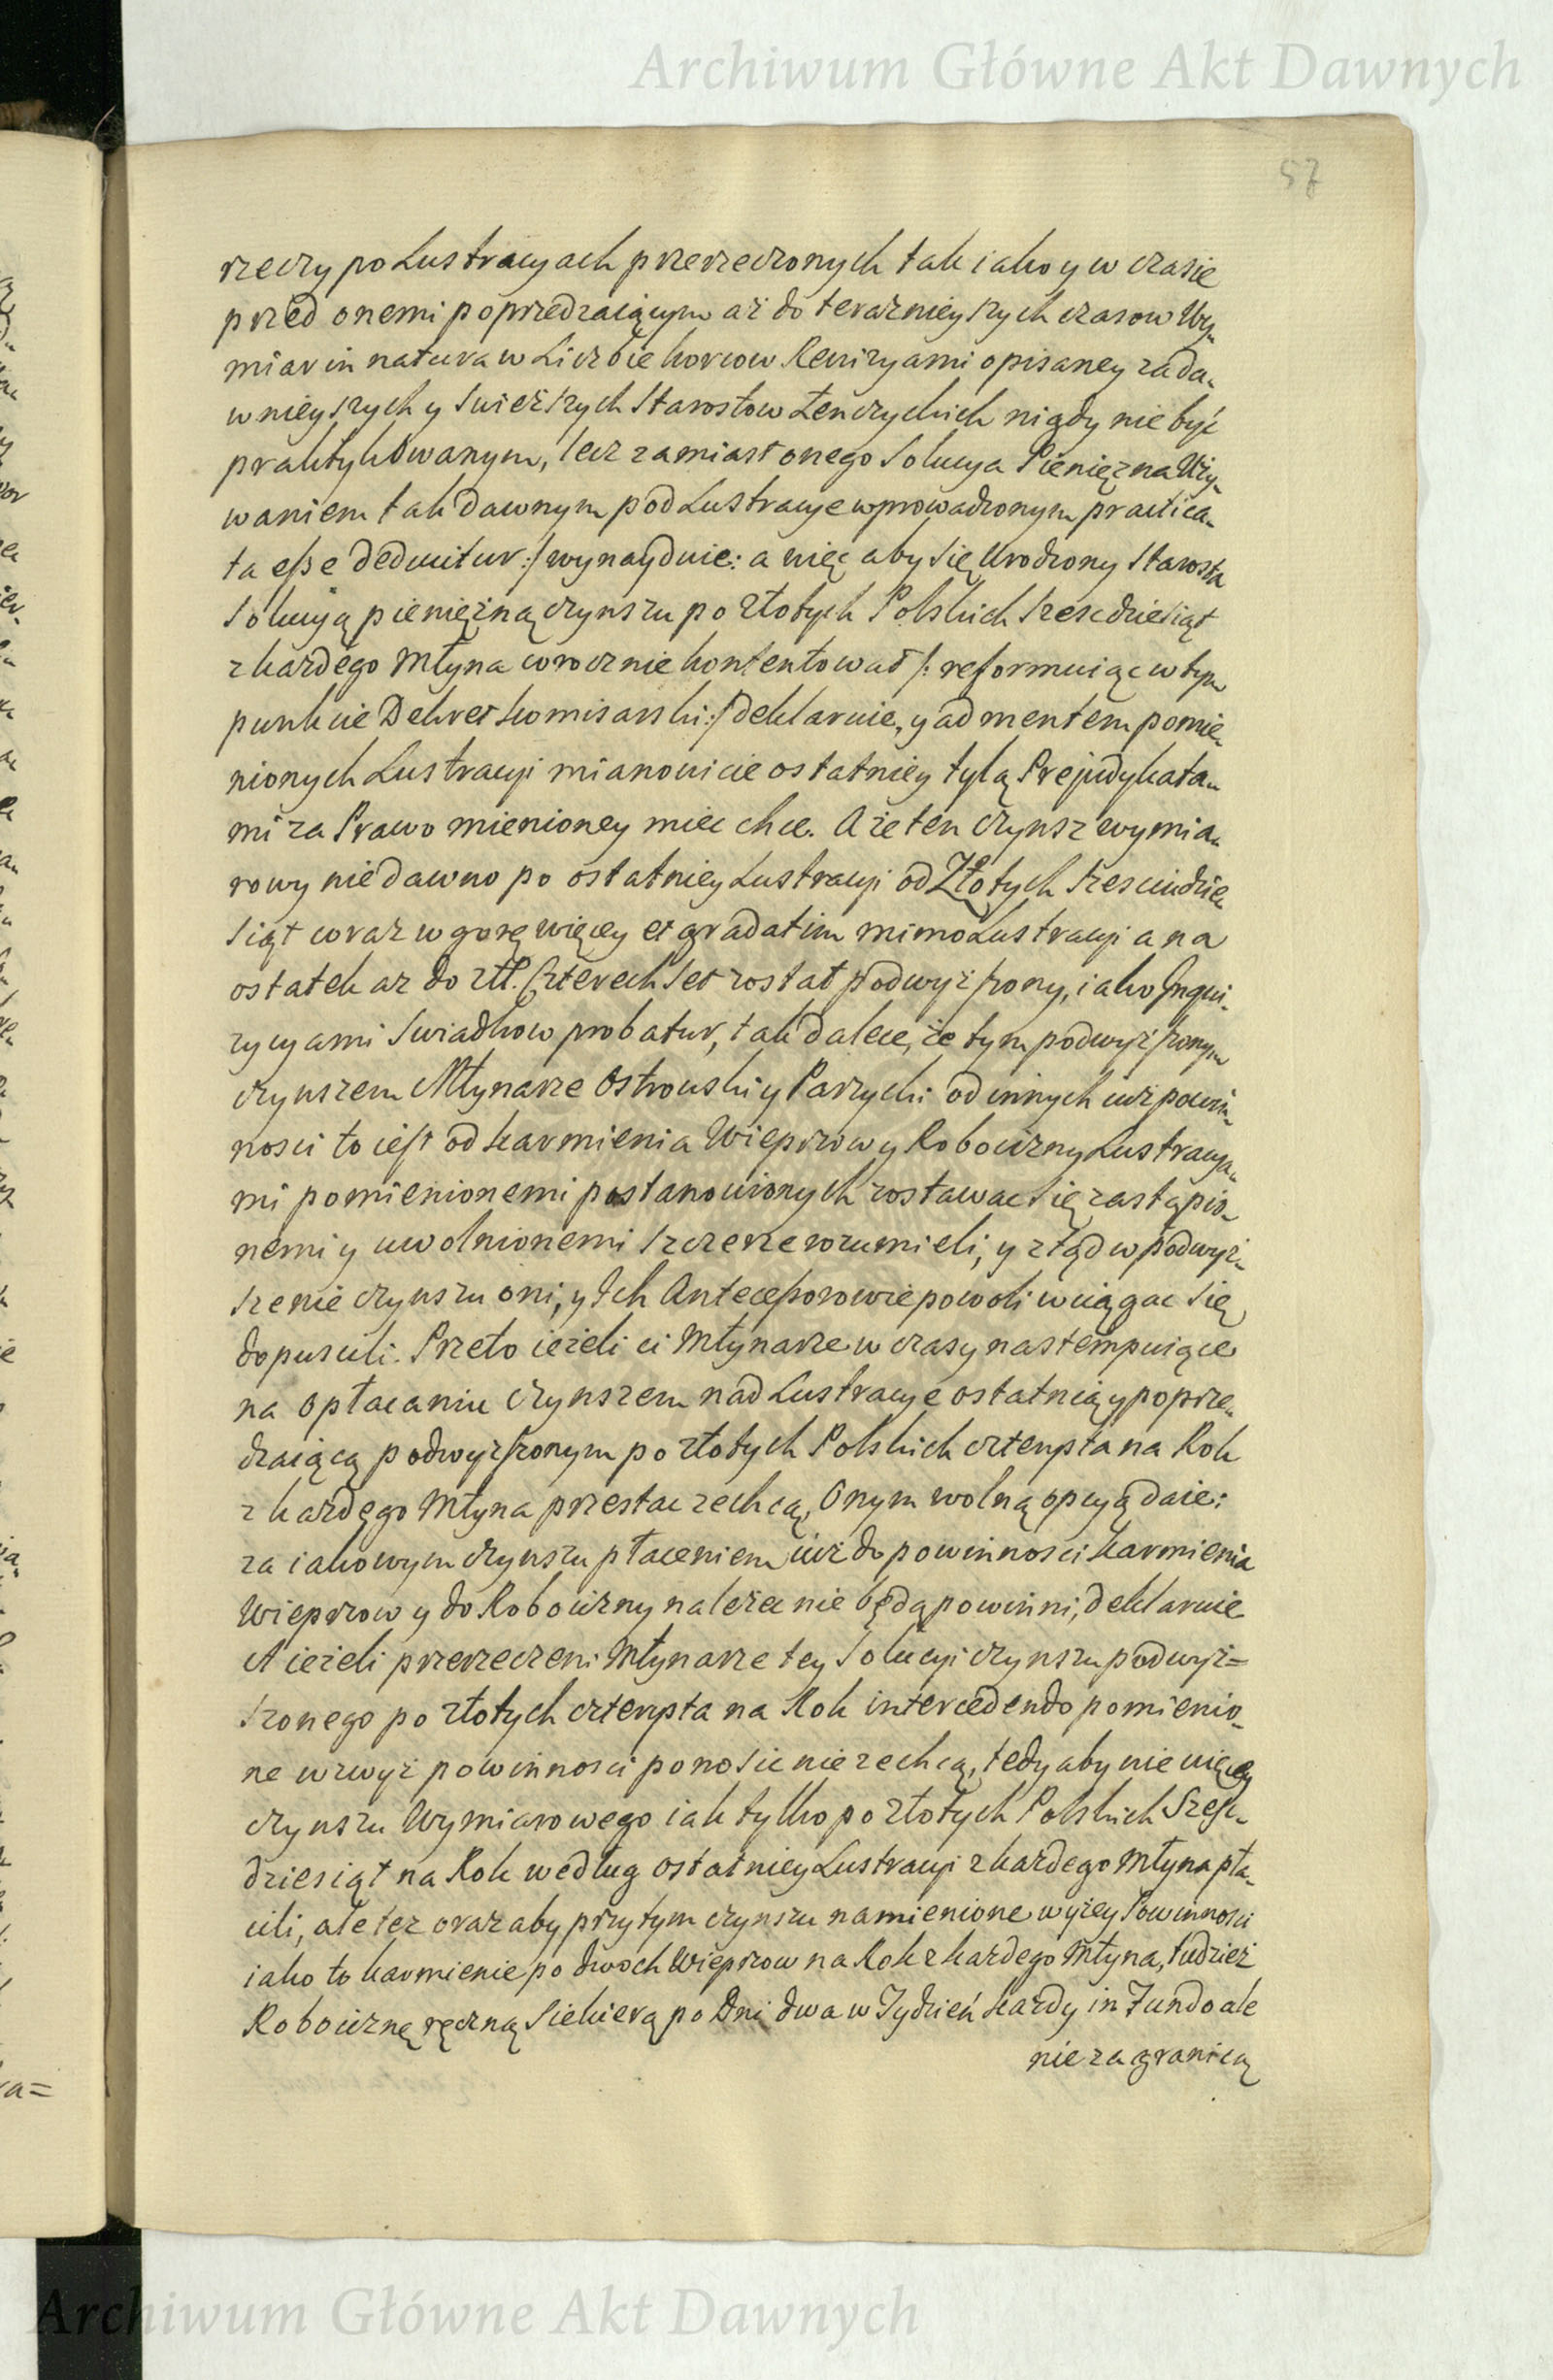 Archiwum Główne Akt Dawnych
57
rzeczy po Lustracyach przerzeczonych tak iako y w czasie
przed onemi poprzedzaiącym aż do teraznieyszych czasow Wy„
miar in natura w Liczbie korcow Rewizyami opisaney za da„
wnieyszych y swieższych Starostow Łenczyckich nigdy nie być
praktykowanym, lecz zamiast onego Solucya Pieniężna Uży„
waniem tak dawnym pod Lustracye wprowadzonym practica„
ta esse deducitur :/ wynayduie: a więc aby się Urodzony Starosta
Solucyą pieniężną czynszu po Złotych Polskich szescdziesiąt
z kazdego Młyna corocznie kontentował /: reformuiąc w tym
punkcie Dekret komisarski :/ deklaruie, y ad mentem pomie„
nionych Lustracyi mianowicie ostatniey tylą Prejudykata„
mi za Prawo mienioney miec chce. A że ten czynsz wymia„
rowy niedawno po ostatniey Lustracyi od Złotych szescudzie„
siąt coraz w gorę więcey et gradatim mimo Lustracyi a na
ostatek az do złł. Czterech set został podwyższony, iako Inqui„
zycyami Swiadkow probatur, tak dalece, że tym podwyższonym
czynszem Młynarze Ostrowski y Parzycki od innych iuż powin„
nosci to iest od karmienia Wieprzow y Robocizny Lustracya„
mi pomienionemi postanowionych zostawac się zastąpio„
nemi y uwolnionemi szczerze rozumieli, y ztąd w podwyż„
szenie czynszu oni, y Ich Antecessorowie powoli wciągac się
dopuscili. Przeto ieżeli ci Młynarze w czasy nastempuiące
na opłacaniu czynszem nad Lustracye ostatnią y poprze„
dzaiącą podwyższonym po złotych Polskich czterysta na Rok
z każdego Młyna przestac zechcą, Onym wolną opcyą daie:
za iakowym czynszu płaceniem iuż do powinnosci karmienia
Wieprzow y do Robocizny należec nie będą powinni, deklaruie
A ieżeli przerzeczeni Młynarze tey Solucyi czynszu podwyż=
szonego po złotych czterysta na Rok intercedendo pomienio„
ne wzwyż powinnosci ponosic nie zechcą, tedy aby nie więcey
czynszu Wymiarowego iak tylko po złotych Polskich Szesc„
dziesiąt na Rok według ostatniey Lustracyi z każdego Młyna pła„
cili, ale też oraz aby przy tym czynszu namienione wyżey Powinnosci
iako to karmienie po dwoch Wieprzow na Rok z każdego Młyna, tudzież
Robociznę ręczną Siekierą po Dni dwa w Tydzień każdy in Fundo ale
nie za granicą
Archiwum Główne Akt Dawnych